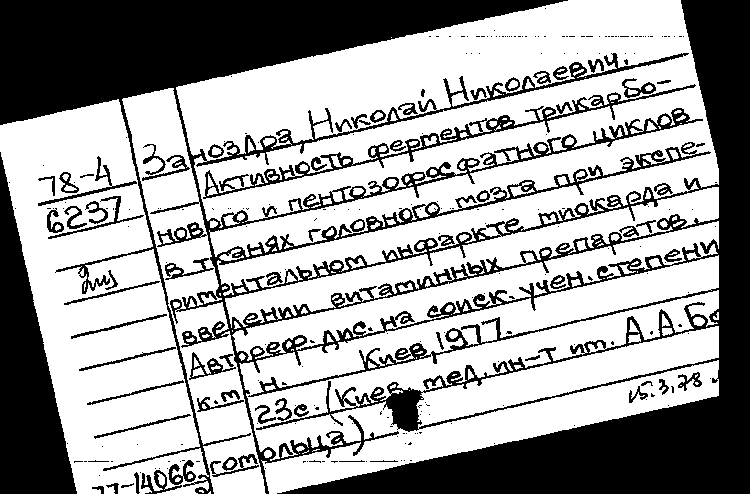 Заноздра, Николай Николаевич.
78-4
6237
Активность ферментов трикарбо-
нового и пентозофосфатного циклов
в тканях головного мозга при экспе-
риментальном инфаркте миокарда и
введении витаминных препаратов.
Автореф. дис. на соиск. учен. степени
к.м.н. Киев, 1977.
23с. (Киев. мед. ин-т им. А.А. Бо
гомольца).
15.3.78
77-14066